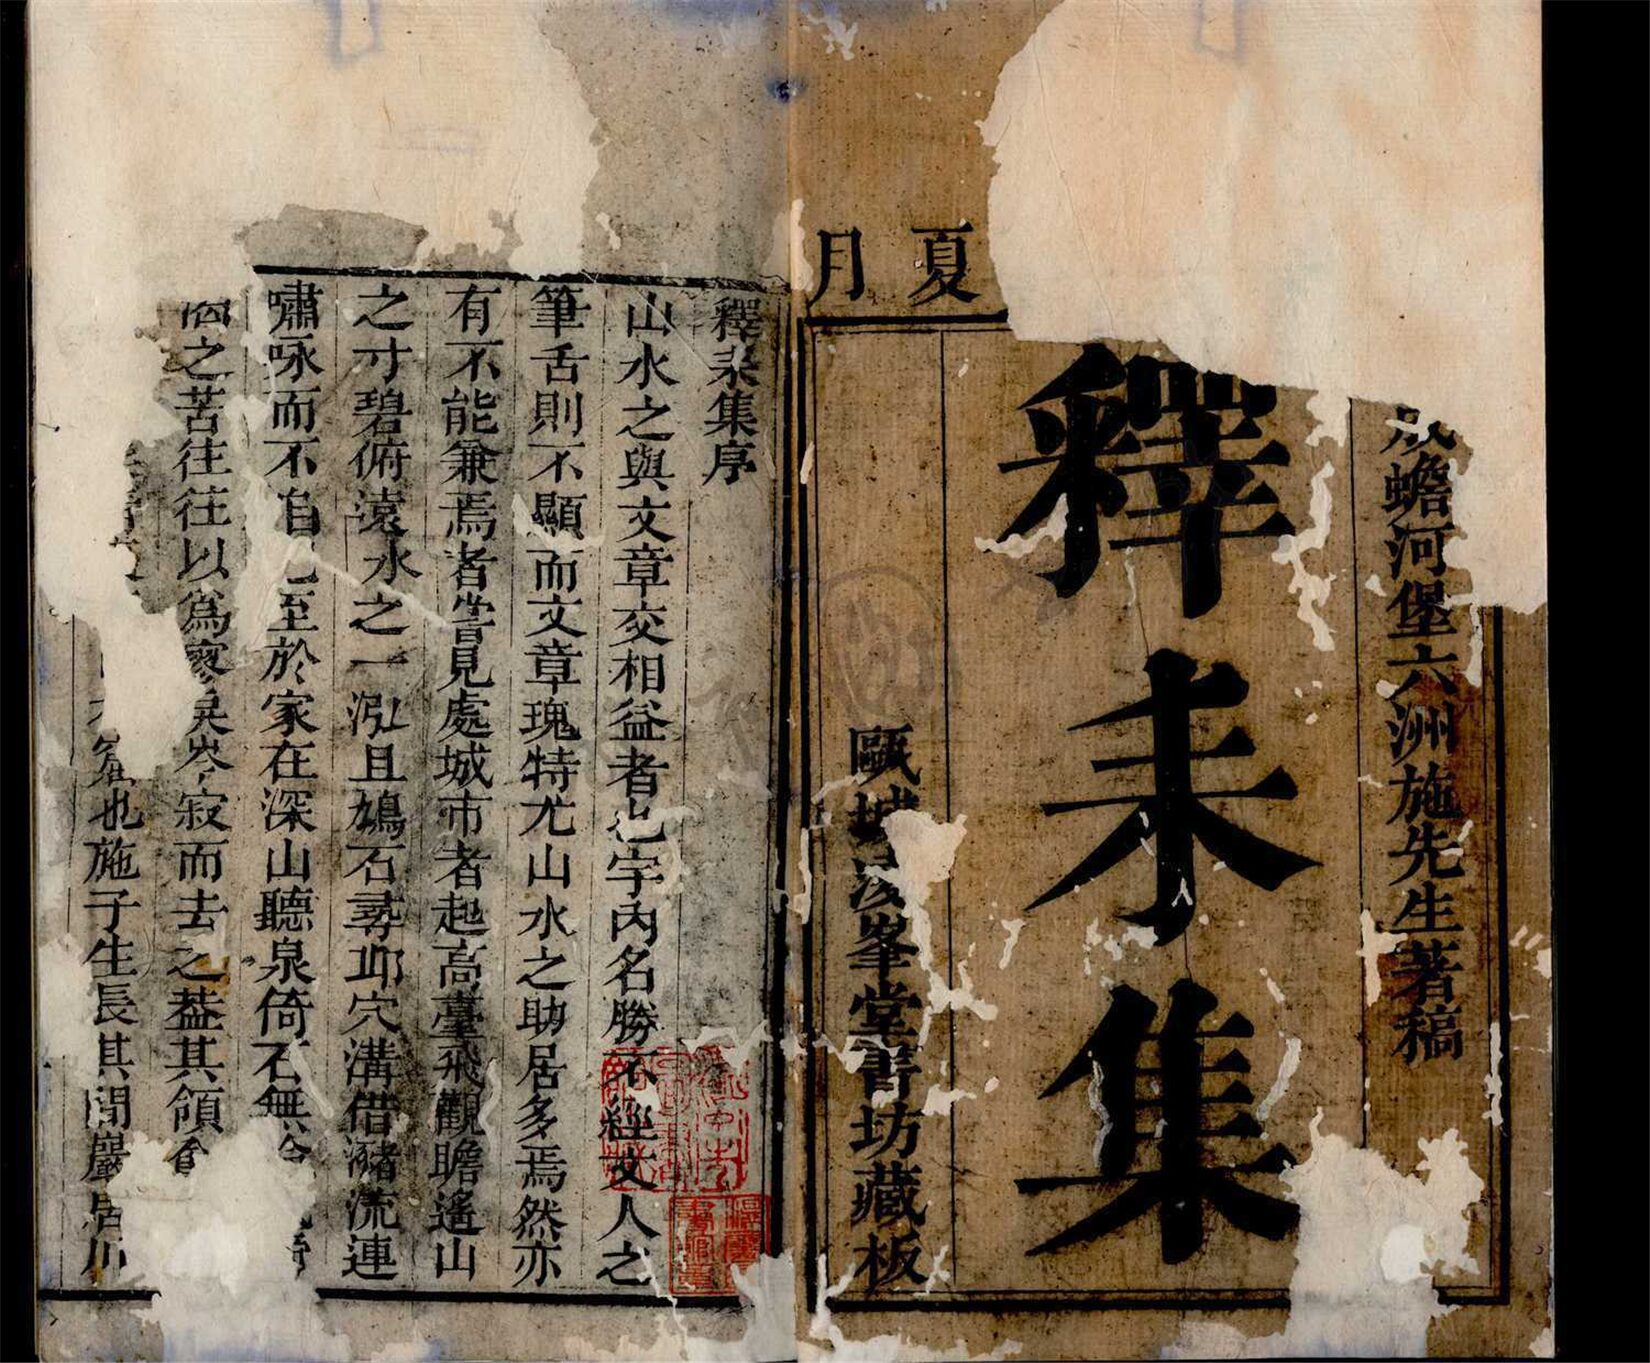 夏月
成蟾河堡六洲施先生著稿
釋耒集
甌城浚峯堂書坊藏板
釋耒集序
山水之與文章交相益者也宇內名勝不經文人之
筆舌則不顯而文章瑰特尤山水之助居多焉然亦
有不能兼焉者嘗見處城市者起高臺飛觀瞻遙山
之寸碧俯遠水之一泓且鳩石尋邱穴溝借瀦流連
嘯咏而不自已至於家在深山聽泉倚石無
之苦往往以為寥 岑寂而去之蓋其領
也施子生長其間巖居川